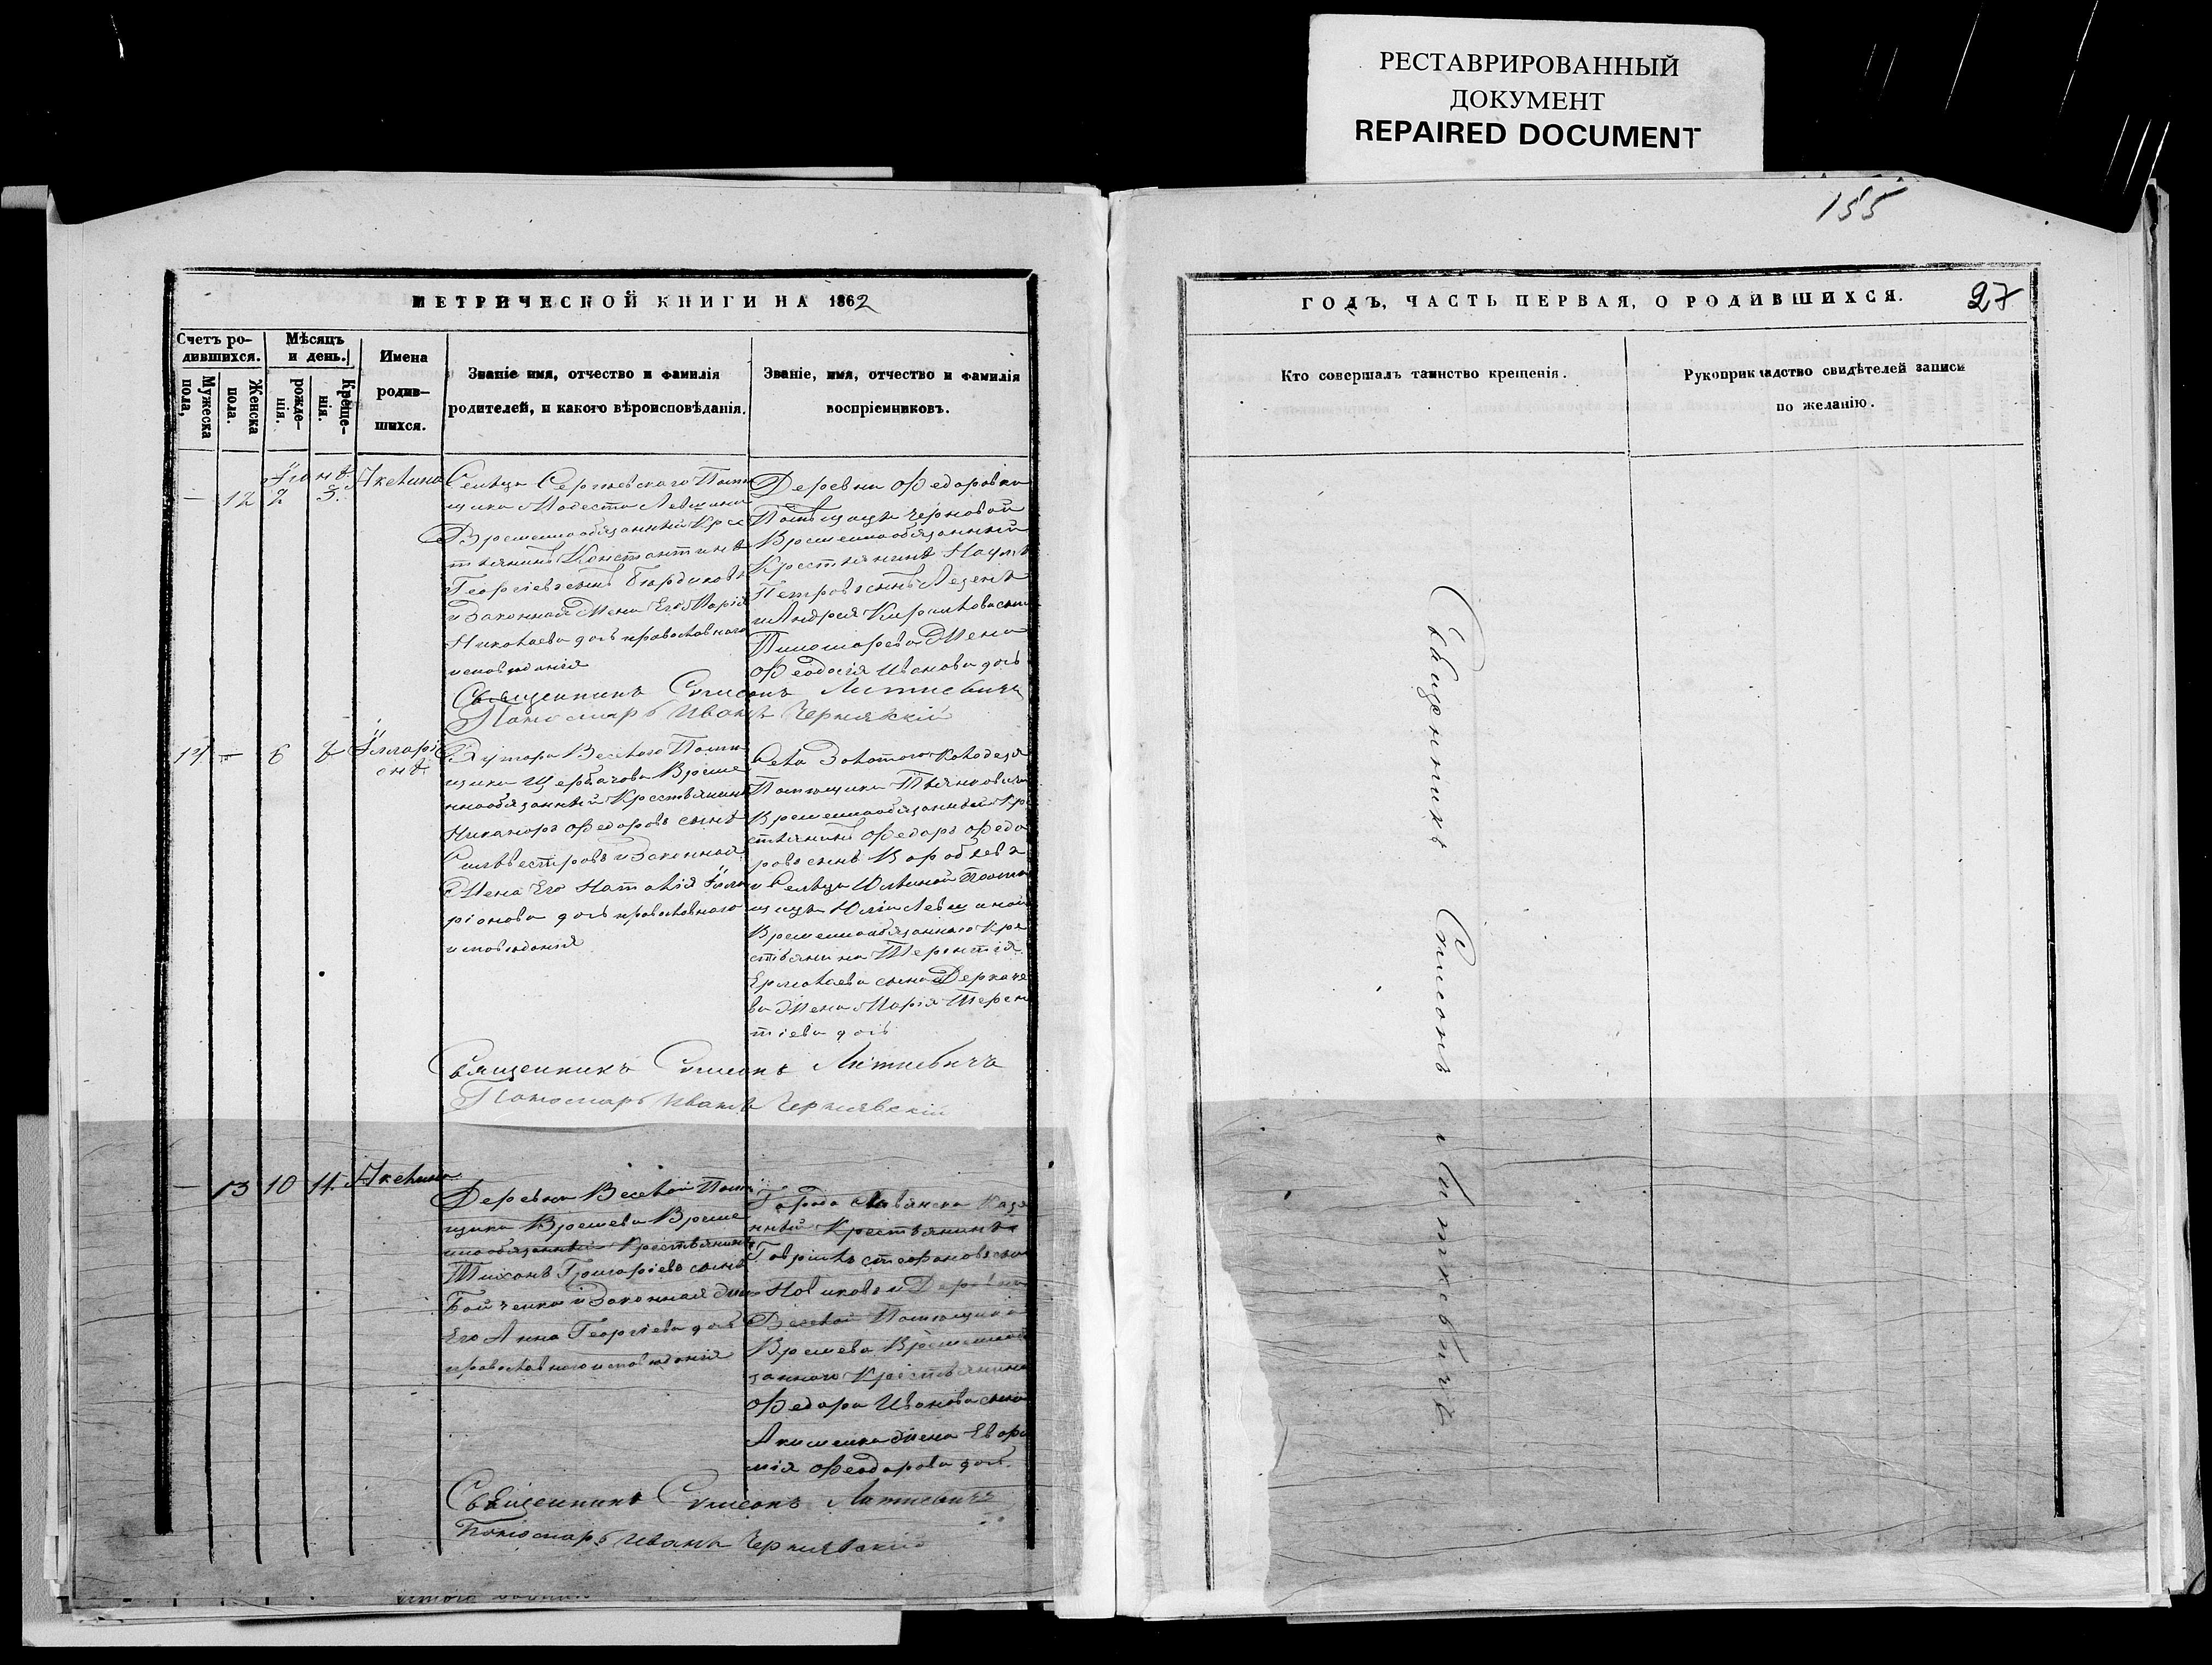 РЕСТАВРИРОВАННЫЙ
ДОКУМЕНТ
REPAIRED DOCUMENT
155
МЕТРИЧЕСКОЙ КНИГИ НА 1862
Счетъ ро-
дившихся.
Мужеска
пола,
Женска
пола.
Мѣсяцъ
и день.
рожде-
нія.
Креще-
нія.
Имена
родив-
шихся.
Званіе имя, отчество и фамилія
родителей, и какого вѣроисповѣданія.
Званіе, имя, отчество и фамилія
воспріемниковъ.
Іюнь
— 12 2 3. Акелина
Сельца Сергѣевскаго Помѣ
щика Модеста Левшина
Временнообязанный Крес
тьянинъ Константинъ
Георгіевъ сынъ
и Законная Жена Его Марія
Николаева дочь православнаго
исповѣданія
Деревни Федоровки
Помѣщицы Черновой
Временнообязанный
Крестьянинъ Наумъ
Петровъ сынъ
и Андрея Кирилова сына
Пономарева Жена
Феодосія Иванова дочь
Священникъ Симеонъ Литкевичъ
Пономарь Иванъ Чернявскій
14 — 6 7 Илларі
онъ
Хутора Веселого Помѣ
щика Щербачова Време
ннообязанный Крестьянинъ
Никаноръ Федоровъ сынъ
Сильвестровъ и Законная
Жена Его Наталія Илла
ріонова дочь православнаго
исповѣданія
Села Золотого Колодезя
Помѣщика
Временнообязанный Кре
стьянинъ Федоръ Федо
ровъ сынъ Воробьевъ
и Сельца Юльиной Помѣ
щицы Юліи Левшиной
Временнообязаннаго Кре
стьянина Терентія
Ермолаева сына Деркаче
ва Жена Марія Терен
тіева дочь
Священникъ Симеонъ Литкевичъ
Пономарь Иванъ Чернявскій
— 13 10 11. Акелина
Деревни Веселой Помѣ
щика Времева Време
ннообязанный Крестьянинъ
Тихонъ Григоріевъ сынъ
Бойченко и Законная Жена
Его Анна Георгіева дочь
православнаго исповѣданія
Города Славянска Казе
нный Крестьянинъ
Гавріилъ Стефановъ сынъ
Новиковъ и Деревни
Веселой Помѣщика
Времева Временнообя
заннаго Крестьянина
Федора Иванова сына
Акименка Жена Евфи
мія Феодорова дочь.
Священникъ Симеонъ Литкевичъ
Пономарь Иванъ Чернявскій
ГОДЪ, ЧАСТЬ ПЕРВАЯ, О РОДИВШИХСЯ. 27
Кто совершалъ таинство крещенія.
Рукоприкладство свидѣтелей записи
по желанію.
Священникъ Симеонъ Литкевичъ.